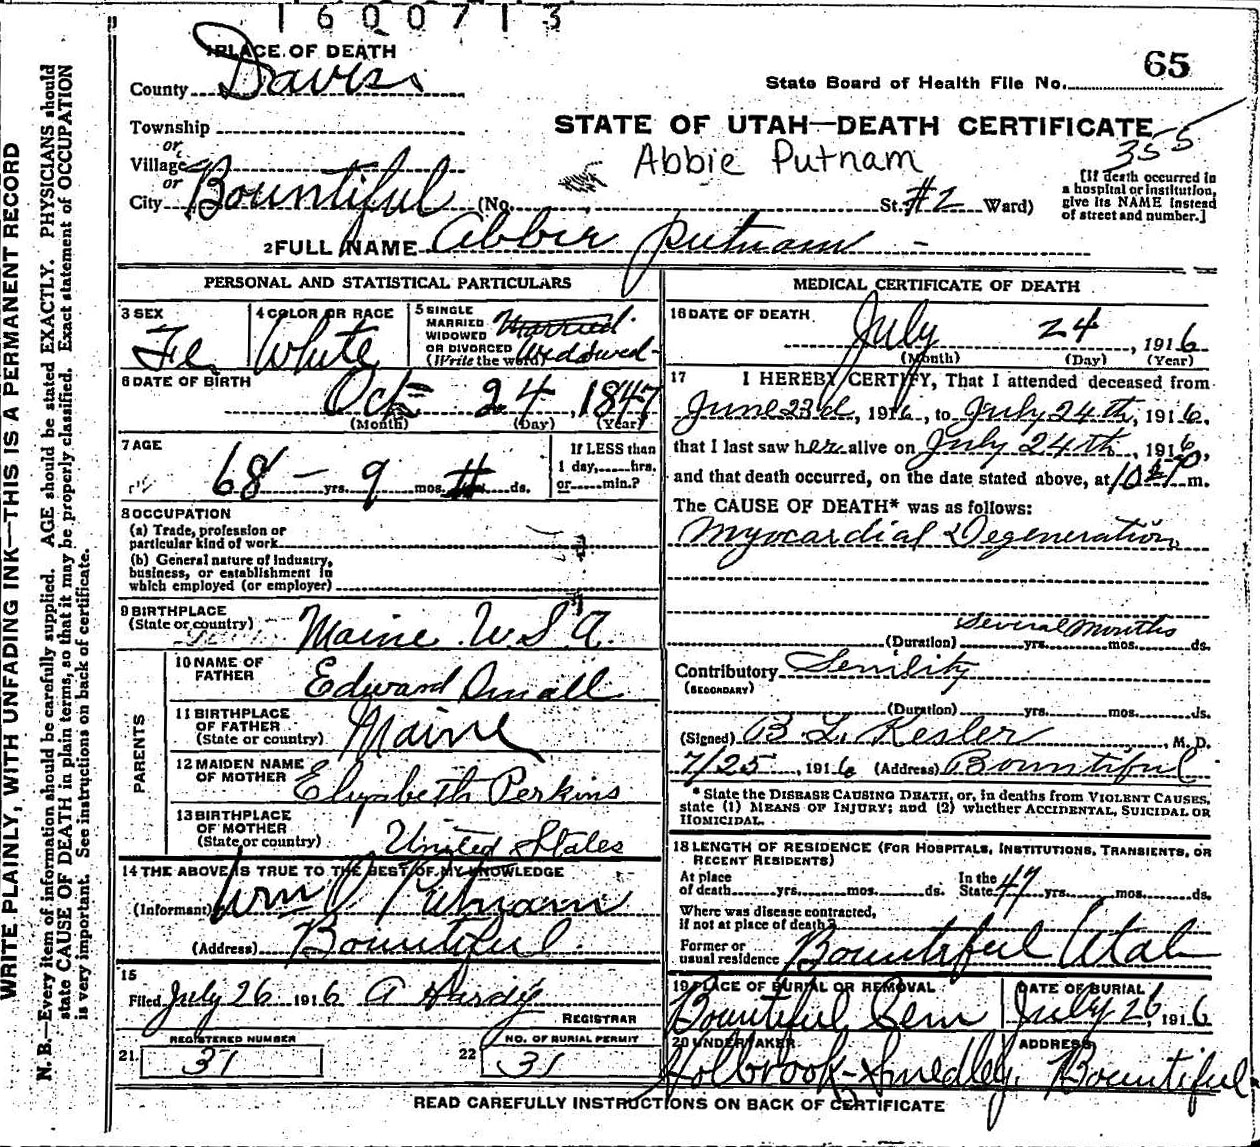 1600713
WRITE PLAINLY, WITH UNFADING INK—THIS IS A PERMANENT RECORD
N. B.—Every item of information should be carefully supplied. AGE should be stated EXACTLY. PHYSICIANS should
state CAUSE OF DEATH in plain terms, so that it may be properly classified. Exact statement of OCCUPATION
is very important. See instructions on back of certificate.
1 PLACE OF DEATH
County Davis
Township
or
Village
or
City Bountiful (No. St. #2 Ward)
State Board of Health File No. 65
STATE OF UTAH—DEATH CERTIFICATE
355
Abbie Putnam
[If death occurred in
a hospital or institution,
give its NAME instead
of street and number.]
2 FULL NAME Abbie Putnam
PERSONAL AND STATISTICAL PARTICULARS
3 SEX Fe
4 COLOR OR RACE White
5 SINGLE
MARRIED
WIDOWED
OR DIVORCED
(Write the word)
Married Widowed
6 DATE OF BIRTH
Oct 24, 1847
(Month) (Day) (Year)
7 AGE
68 yrs. 9 mos. ds.
If LESS than
1 day, hrs.
or min.?
8 OCCUPATION
(a) Trade, profession or
particular kind of work
(b) General nature of industry,
business, or establishment in
which employed (or employer)
9 BIRTHPLACE
(State or country) Maine U.S.A.
PARENTS
10 NAME OF
FATHER Edward Small
11 BIRTHPLACE
OF FATHER
(State or country) Maine
12 MAIDEN NAME
OF MOTHER Elizabeth Perkins
13 BIRTHPLACE
OF MOTHER
(State or country) United States
14 THE ABOVE IS TRUE TO THE BEST OF MY KNOWLEDGE
(Informant) Wm O Putnam
(Address) Bountiful
15
Filed July 26 1916 A Hardy
REGISTRAR
REGISTERED NUMBER
21. 31
NO. OF BURIAL PERMIT
22 31
MEDICAL CERTIFICATE OF DEATH
16 DATE OF DEATH
July 24, 1916
(Month) (Day) (Year)
17 I HEREBY CERTIFY, That I attended deceased from
June 23d, 1916, to July 24th, 1916,
that I last saw her alive on July 24th, 1916,
and that death occurred, on the date stated above, at m.
The CAUSE OF DEATH* was as follows:
Myocardial Degeneration
Several Months
(Duration) yrs. mos. ds.
Contributory Senility
(SECONDARY)
(Duration) yrs. mos. ds.
(Signed) B L. Kesler, M. D.
7/25, 1916 (Address) Bountiful
* State the DISEASE CAUSING DEATH, or, in deaths from VIOLENT CAUSES,
state (1) MEANS OF INJURY; and (2) whether ACCIDENTAL, SUICIDAL OR
HOMICIDAL.
18 LENGTH OF RESIDENCE (FOR HOSPITALS, INSTITUTIONS, TRANSIENTS, OR
RECENT RESIDENTS)
At place
of death yrs. mos. ds.
In the
State 47 yrs. mos. ds.
Where was disease contracted,
if not at place of death?
Former or
usual residence Bountiful Utah
19 PLACE OF BURIAL OR REMOVAL
Bountiful Cem
DATE OF BURIAL
July 26, 1916
20 UNDERTAKER
Holbrook-Smedley.
ADDRESS
Bountiful
READ CAREFULLY INSTRUCTIONS ON BACK OF CERTIFICATE